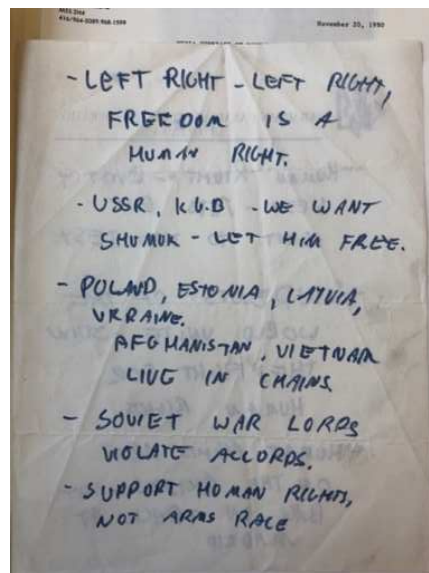 November 20, 1990
- LEFT RIGHT - LEFT RIGHT,
FREEDOM IS A
HUMAN RIGHT.
- USSR, K.G.B - WE WANT
SHUMUK - LET HIM FREE.
- POLAND, ESTONIA, LATVIA,
UKRAINE.
AFGHANISTAN, VIETNAM
LIVE IN CHAINS.
- SOVIET WAR LORDS
VIOLATE ACCORDS.
- SUPPORT HUMAN RIGHTS,
NOT ARMS RACE